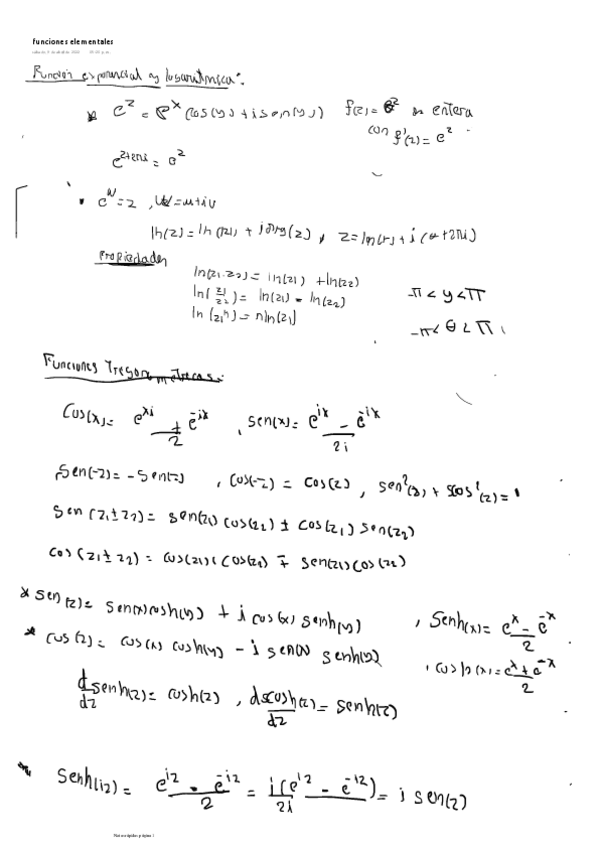 funciones elementales
Función exponencial y logarítmica:
* e^z = e^x (cos(y) + i sen(y))   f(z) = e^z es entera
con f'(z) = e^z
e^{z+2πi} = e^z
• e^w = z , w = u + iv
ln(z) = ln(|z|) + i arg(z) , z = ln(r) + i(θ + 2πi)
Propiedades
ln(z1·z2) = ln(z1) + ln(z2)
ln(z1/z2) = ln(z1) - ln(z2)   -π < y < π
ln(z1^n) = n ln(z1)   -π < θ < π
Funciones Trigonometricas:
Cos(x) = e^{xi} + e^{-ix} / 2 , sen(x) = e^{ix} - e^{-ix} / 2i
Sen(-z) = -Sen(z) , Cos(-z) = Cos(z) , sen²(z) + cos²(z) = 1
Sen(z1 ± z2) = sen(z1) cos(z2) ± cos(z1) sen(z2)
cos(z1 ± z2) = cos(z1) cos(z2) ∓ sen(z1) cos(z2)
* sen(z) = sen(x) cosh(y) + i cos(x) senh(y) , Senh(x) = e^x - e^{-x} / 2
* cos(z) = cos(x) cosh(y) - i sen(x) senh(y) , cosh(x) = e^x + e^{-x} / 2
d/dz senh(z) = cosh(z) , d cosh(z)/dz = senh(z)
* Senh(iz) = e^{iz} - e^{-iz} / 2 = i(e^{iz} - e^{-iz}) / 2i = i sen(z)